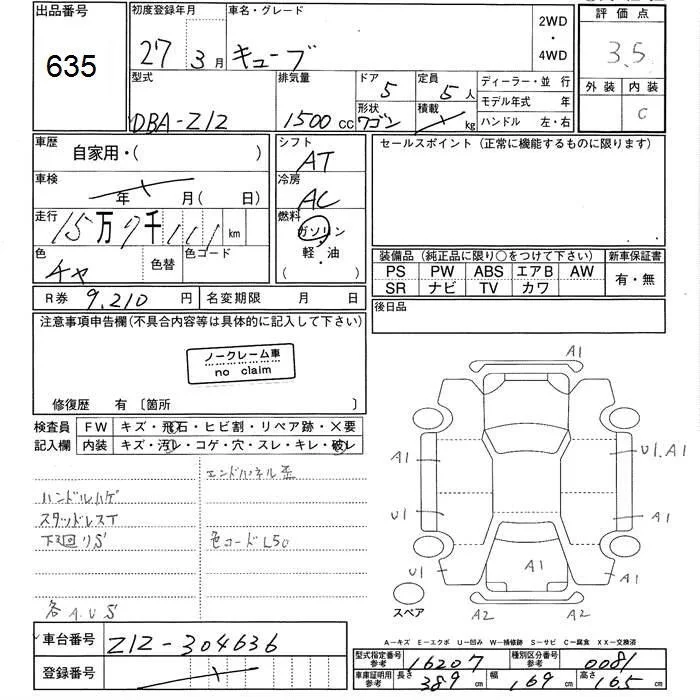 出品番号
635
初度登録年月
27 3月
車名・グレード
キューブ
2WD
・
4WD
評価点
3.5
外装 内装
C
型式
DBA-Z12
排気量
1500 cc
ドア
5
形状
ワゴン
定員
5人
積載
kg
ディーラー・並行
モデル年式 年
ハンドル 左・右
車歴
自家用・( )
車検
年 月(日)
走行
15万7千111 km
色
チャ
色替
色コード
R券 9,210 円
名変期限 月 日
シフト
AT
冷房
AC
燃料
ガソリン
・
軽・油
( )
セールスポイント(正常に機能するものに限ります)
装備品(純正品に限り○をつけて下さい)
PS PW ABS エアB AW
SR ナビ TV カワ
新車保証書
有・無
後日品
注意事項申告欄(不具合内容等は具体的に記入して下さい)
ノークレーム車
no claim
修復歴 有〔箇所 〕
検査員
記入欄
FW キズ・飛石・ヒビ割・リペア跡・×要
内装 キズ・汚レ・コゲ・穴・スレ・キレ・破レ
エンドパネル歪
ハンドルハゲ
スタッドレスT
下廻りS
色コードL50
各A.U.S
A1
A1
U1.A1
U1
A1
U1
A1
A1
A2
A2
スペア
A-キズ E-エクボ U-凹み W-補修跡 S-サビ C-腐食 XX-交換済
車台番号 Z12-304636
登録番号
型式指定番号
参考
16207
種別区分番号
参考
0081
車庫証明用
参考
長さ 389 cm
幅 169 cm
高さ 165 cm